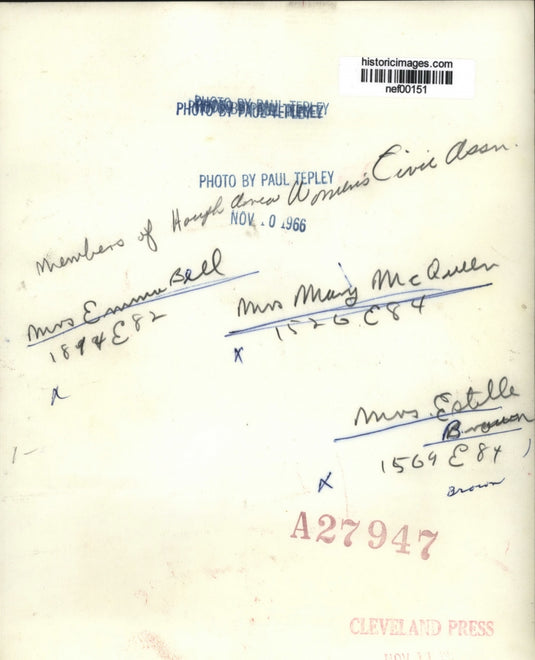 historicimages.com
nef00151
PHOTO BY PAUL TEPLEY
PHOTO BY PAUL TEPLEY
NOV 10 1966
Members of Hough Area Women's Civic Assn.
Mrs Emma Bell
1894 E 82
x
Mrs Mary McQueen
1526 E 84
x
Mrs. Estelle
Brown
1569 E 84
x
Brown
A27947
CLEVELAND PRESS
NOV 11